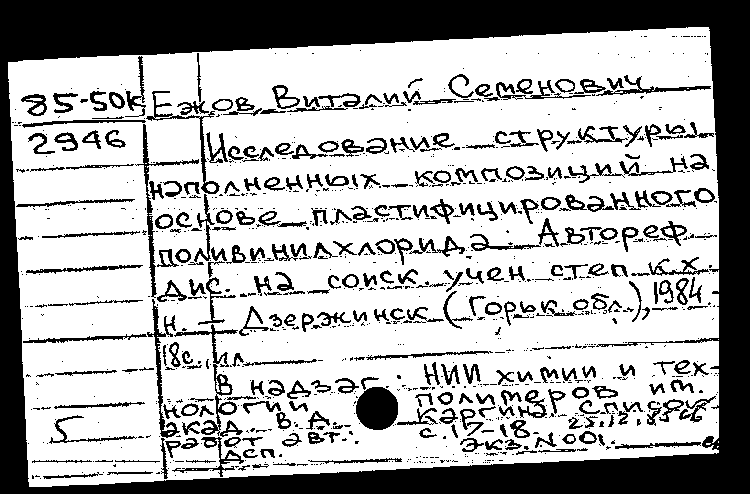 85-50к Ежов, Виталий Семенович
2946 Исследование структуры
наполненных композиций на
основе пластифицированного
поливинилхлорида. Автореф
дис. на соиск. учен степ к.х.
н. — Дзержинск (Горьк. обл.), 1984.-
18с., ил
В надзаг.: НИИ химии и тех-
нологии полимеров им.
акад. В.А. Каргина. Список
работ авт.: с. 17-18. 25.12.85
дсп. Экз. N 001.
5